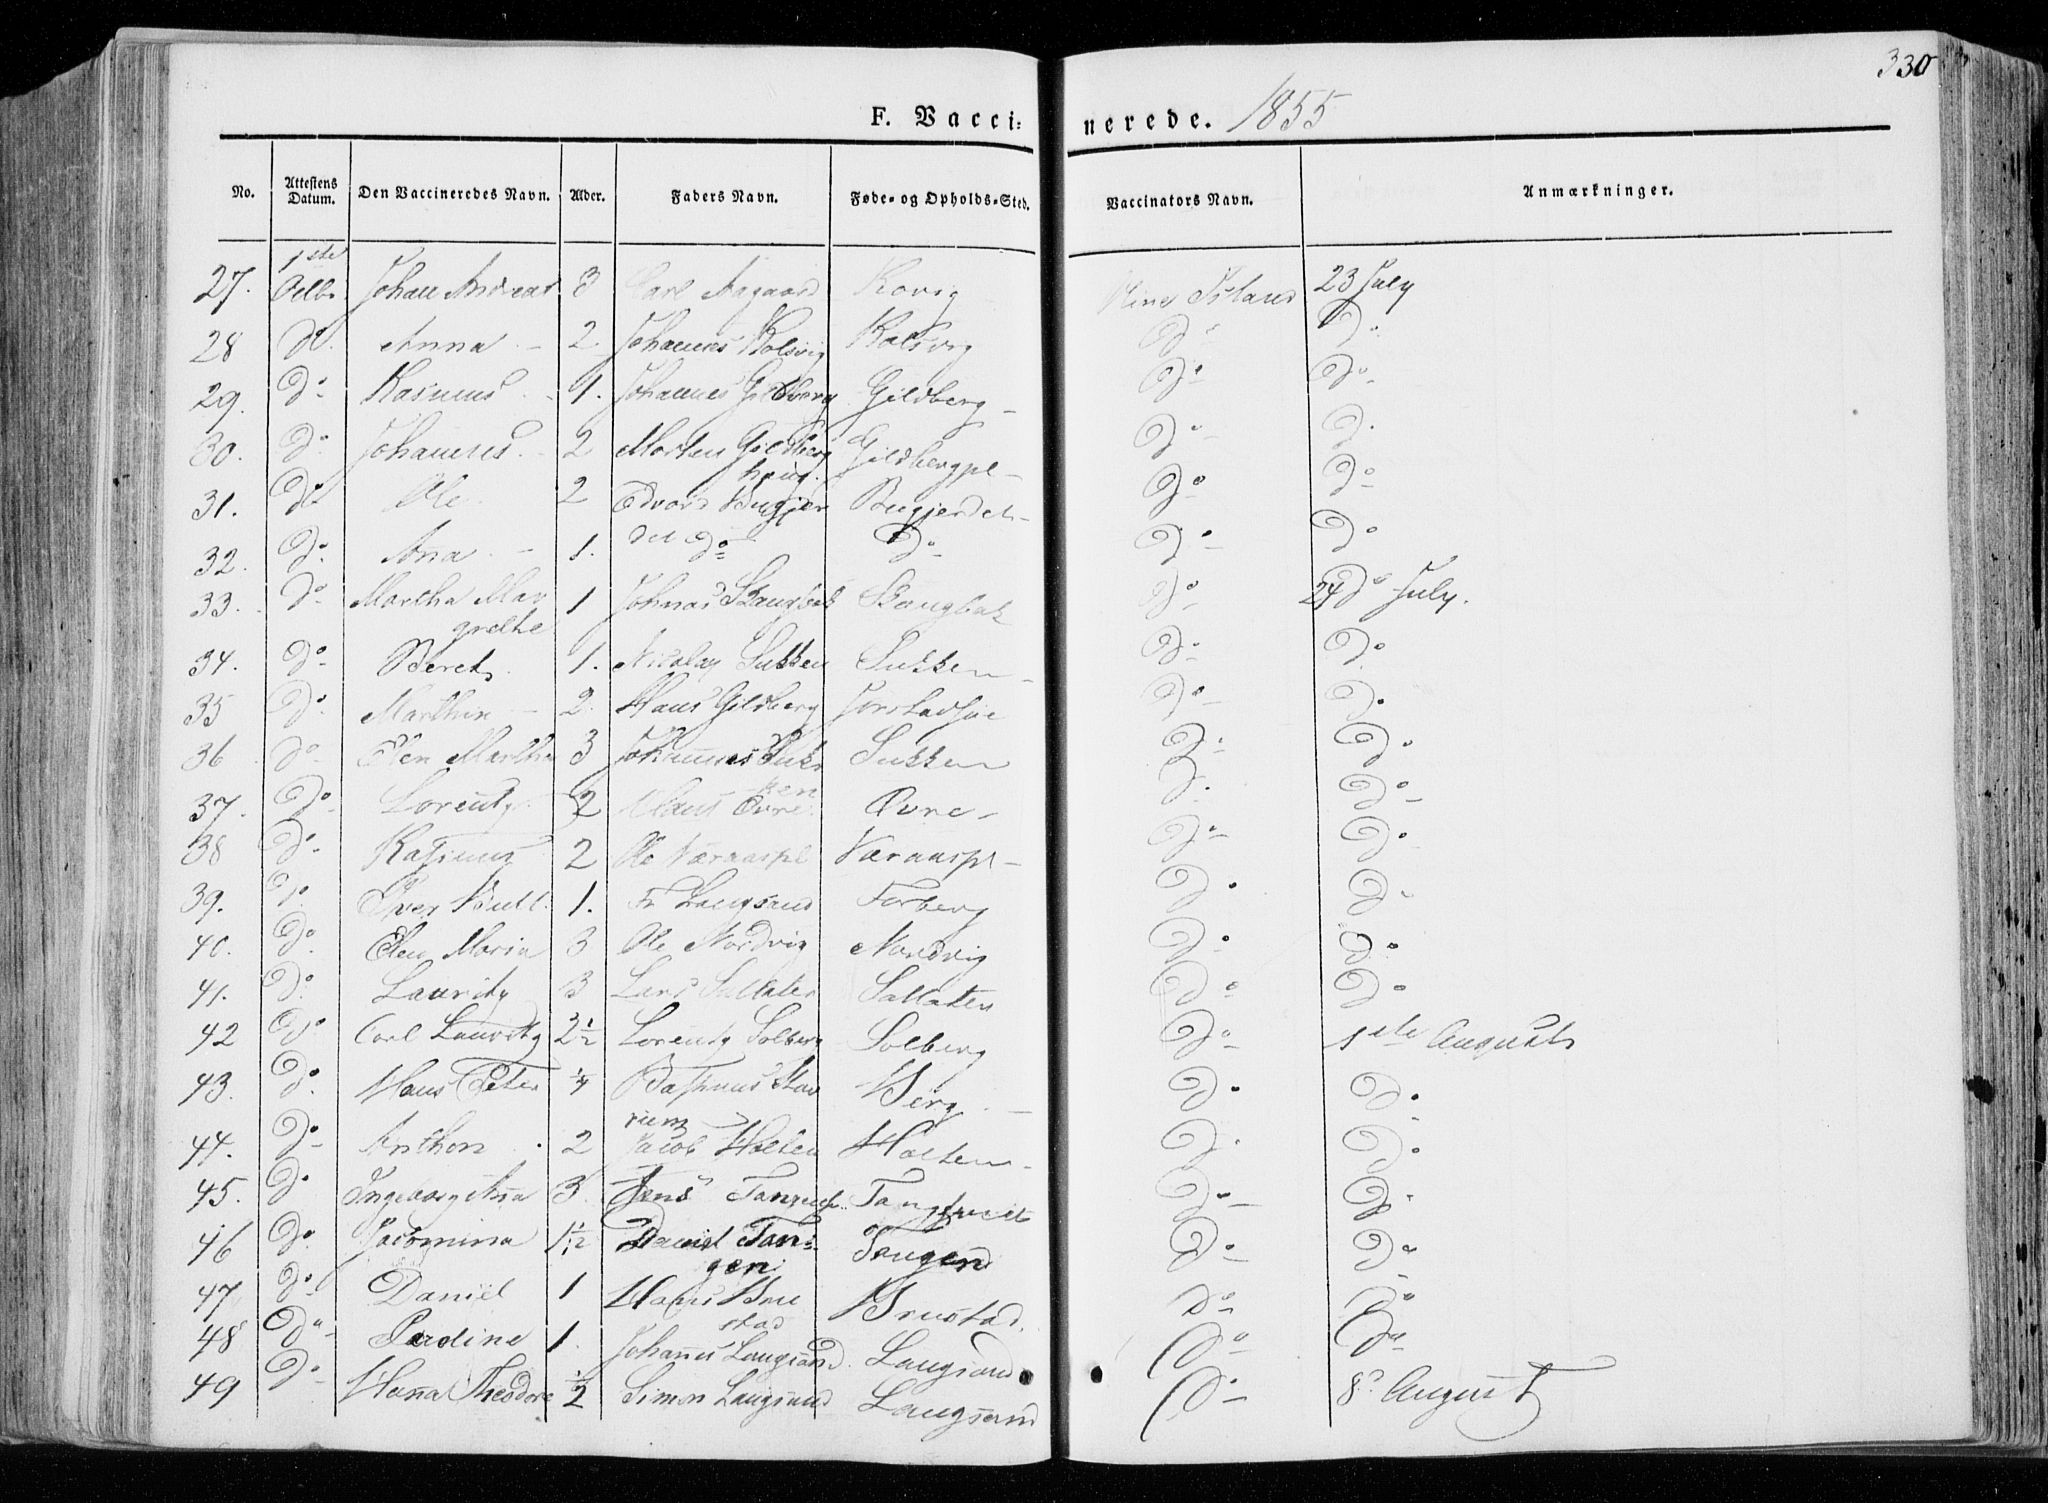 330
F. Vaccinerede. 1855
No. Attestens Datum. Den Vaccineredes Navn. Alder. Faders Navn. Føde- og Opholds-Sted. Vaccinators Navn. Anmærkninger.
27. 1ste Johan Andreas 3 Carl Aagaard Kovig 23 July
28 do. Anna 2 Johannes Kolsvig Kolsvig Do Do
29. Do Rasmus 1. Johannes Gildberg Gildberg Do Do
30. Do Johannes 2 Morten Gildberg Gildbergpl Do Do
31. Do Ole 2 Edvard Bugjerdet Bugjerdet Do Do
32. Do Ana 1. Do Do Do Do
33. Do Martha Margrethe 1 Johnas Skaugbak Skaugbak Do 24 Do July.
34. Do Beret 1. Nicolay Sukken Sukken Do Do
35 Do Marthin 2. Hans Gildberg Do Do
36 Do Elen Martha 3 Johannes Sukken Sukken Do Do
37. Do Lorents 2 Claus Øvre Øvre Do Do
38 Do Rasmus 2 Ole Næraaspl Næraaspl Do Do
39. Do Iver Bull 1. Fr Langsand Forberg Do Do
40. Do Elen Maria 3 Ole Nordvig Nordvig Do Do
41. Do Lauritz 3 Lars Saltaten Saltaten Do Do
42 Do Carl Lauritz 2½ Lorents Solberg Solberg Do 1ste August
43. Do Hans Peter ¼ Berg Do Do
44. Do Anthon 2 Jacob Holten Holten Do Do
45. Do Ingeborg Ana 3 Jens Do Do
46 Do Jacomina 1½ Daniel Tangen Tangen Do Do
47 Do Daniel 1 Hans Brustad Brustad. Do Do
48 Do 1. Johanes Langsand Langsand Do Do
49 Do Hanna Theodore ½ Simon Langsand Langsand Do 8 August